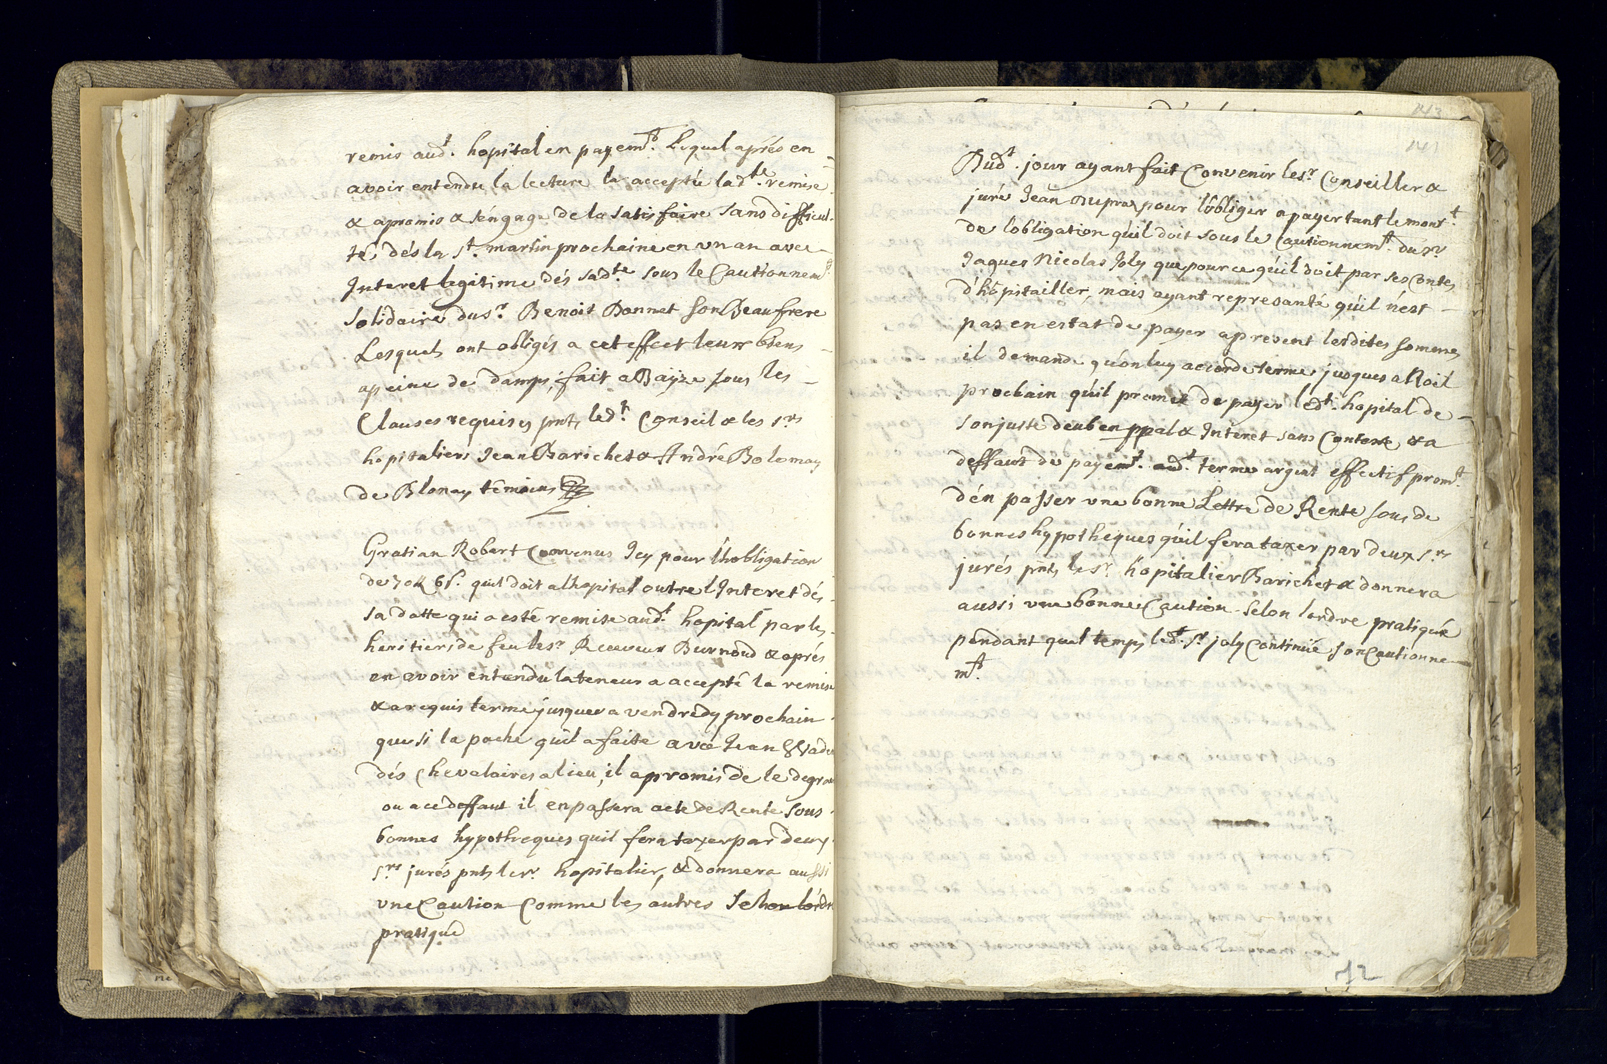 remis aud.t hopital en payem.t Lequel aprés en
avoir entendu la lecture la acceptée lad.te remise
& apromis & sengage de la satisfaire sans difficul-
té, dés la St. martin prochaine en un an avec
Interet legitime dés sad.te sous le Cautionnem.t
Solidaire du sr. Benoit Bonnet son Beaufrere
Lesquels ont obligés a cet effect leurs biens
apeine de damps, fait a Bayze sous les
Clauses requises pnts led.t Conseil & les srs
hopitaliers Jean Barichet & André Bolomay
de Blonay têmoins
Gratian Robert Convenus Icy pour lhobligation
de 70 ll 6 s. quil doit alhopital outre lInteret dés
sa datte qui a esté remise aud.t hopital par les
heritiers de feu le sr. Receveur Burnond & aprés
en avoir entendu la teneur a accepté la remise
& a requis terme jusques a vendredy prochain
que si la pache quil a faite avec Jean
dés Chevalaires a lieu, il apromis de le
ou a ce deffaut il en passera acte de Rente sous
bonnes hypotheques quil fera taxer par deux
srs jurés pnts le sr. hopitalier, & donnera aussi
une Caution Comme les autres Selon lordre
pratiqué
143
141
Dud.t jour ayant fait Convenir le sr. Conseiller &
juré Jean Dupraz pour lobliger a payer tant le mont.t
de lobligation quil doit sous le Cautionnem.t du sr
Jaques Nicolas Joly que pour ce quil doit par ses Contes
d'hôpitailler, mais ayant represanté quil nest
pas en estat de payer apresent lesdites sommes
il demande quon luy accorde terme jusques a Noël
prochain quil promet de payer led.t hopital de
son juste deub en ppal & Interet sans Conteste, & a
deffaut de payem.t aud.t terme argent effectif prom.t
d'en passer une bonne Lettre de Rente sous de
bonnes hypothéques quil fera taxer par deux srs
jurés pnts le sr. hopitalier Barichet & donnera
aussi une bonne Caution selon lordre pratiqué
pendant quel temps led.t sr. joly Continüe son Cautionne-
m.t
72